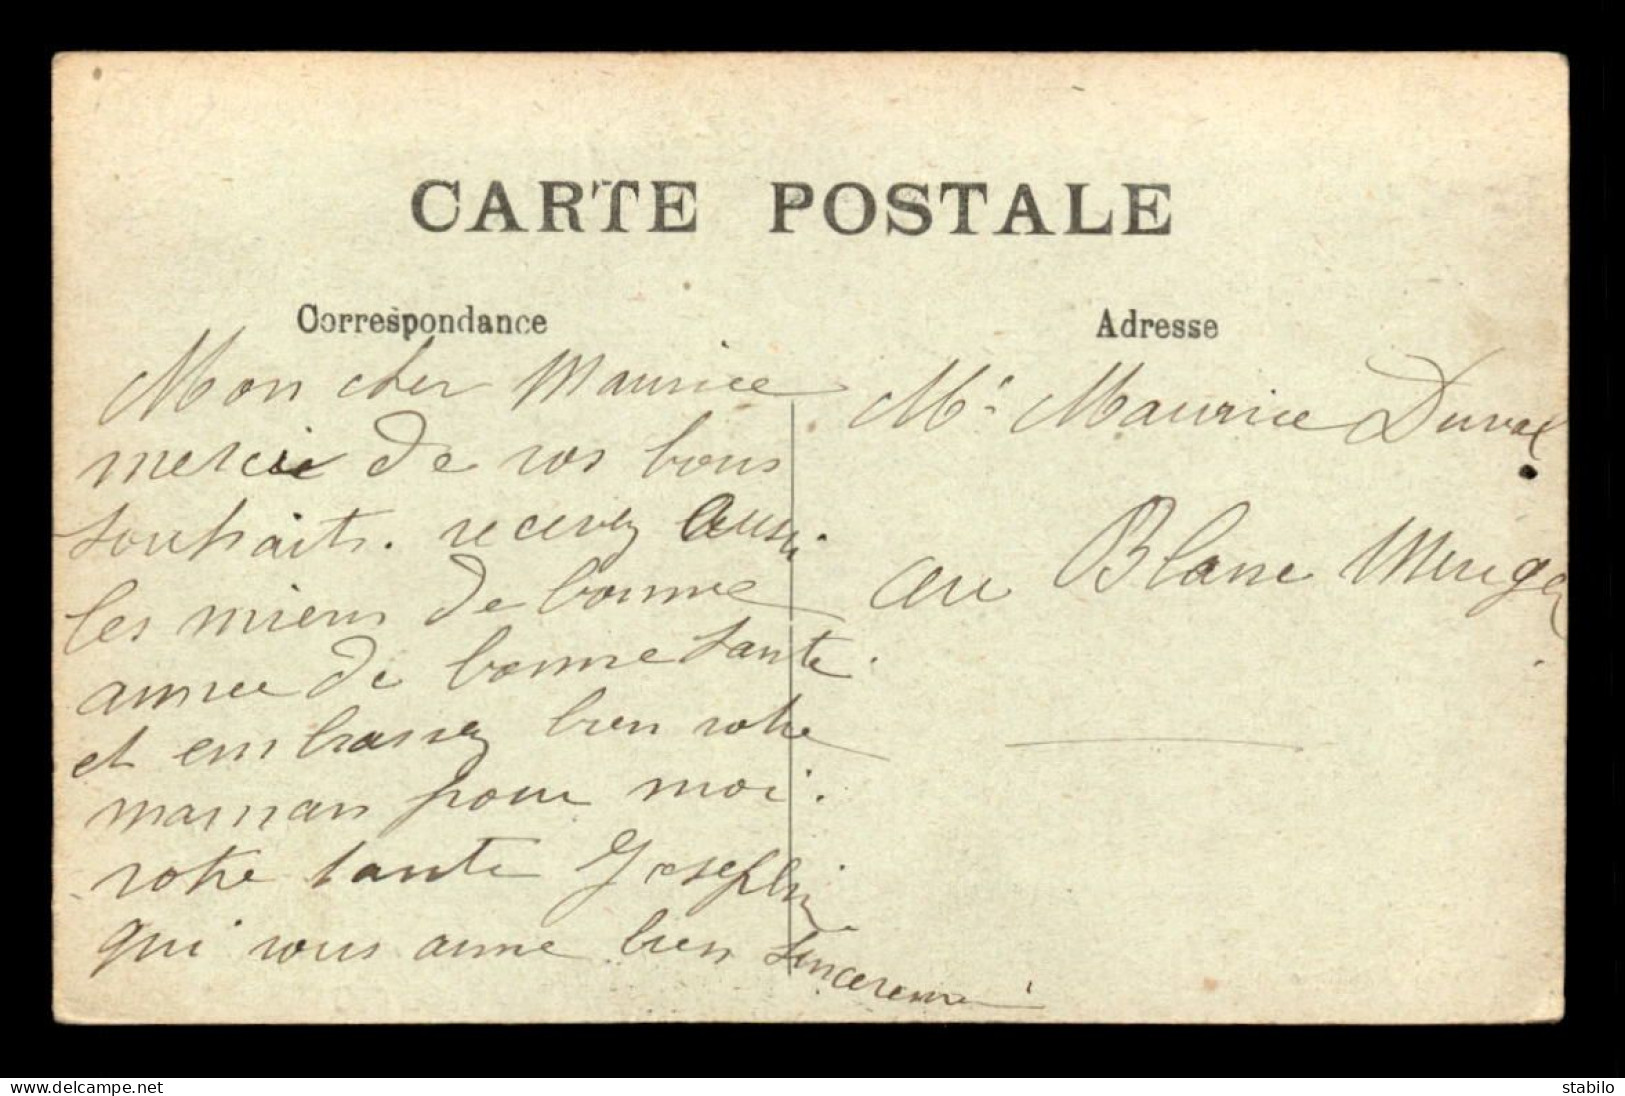 CARTE POSTALE
Correspondance
Mon cher Maurice
mercie de vos bons
souhaits. recevez aussi
les miens de bonne
annee de bonne sante.
et embrassez bien votre
maman pour moi.
votre tante Josephin
qui vous aime bien sincereme
Adresse
Mr Maurice Duval
au Blanc
delcampe.net
stabilo